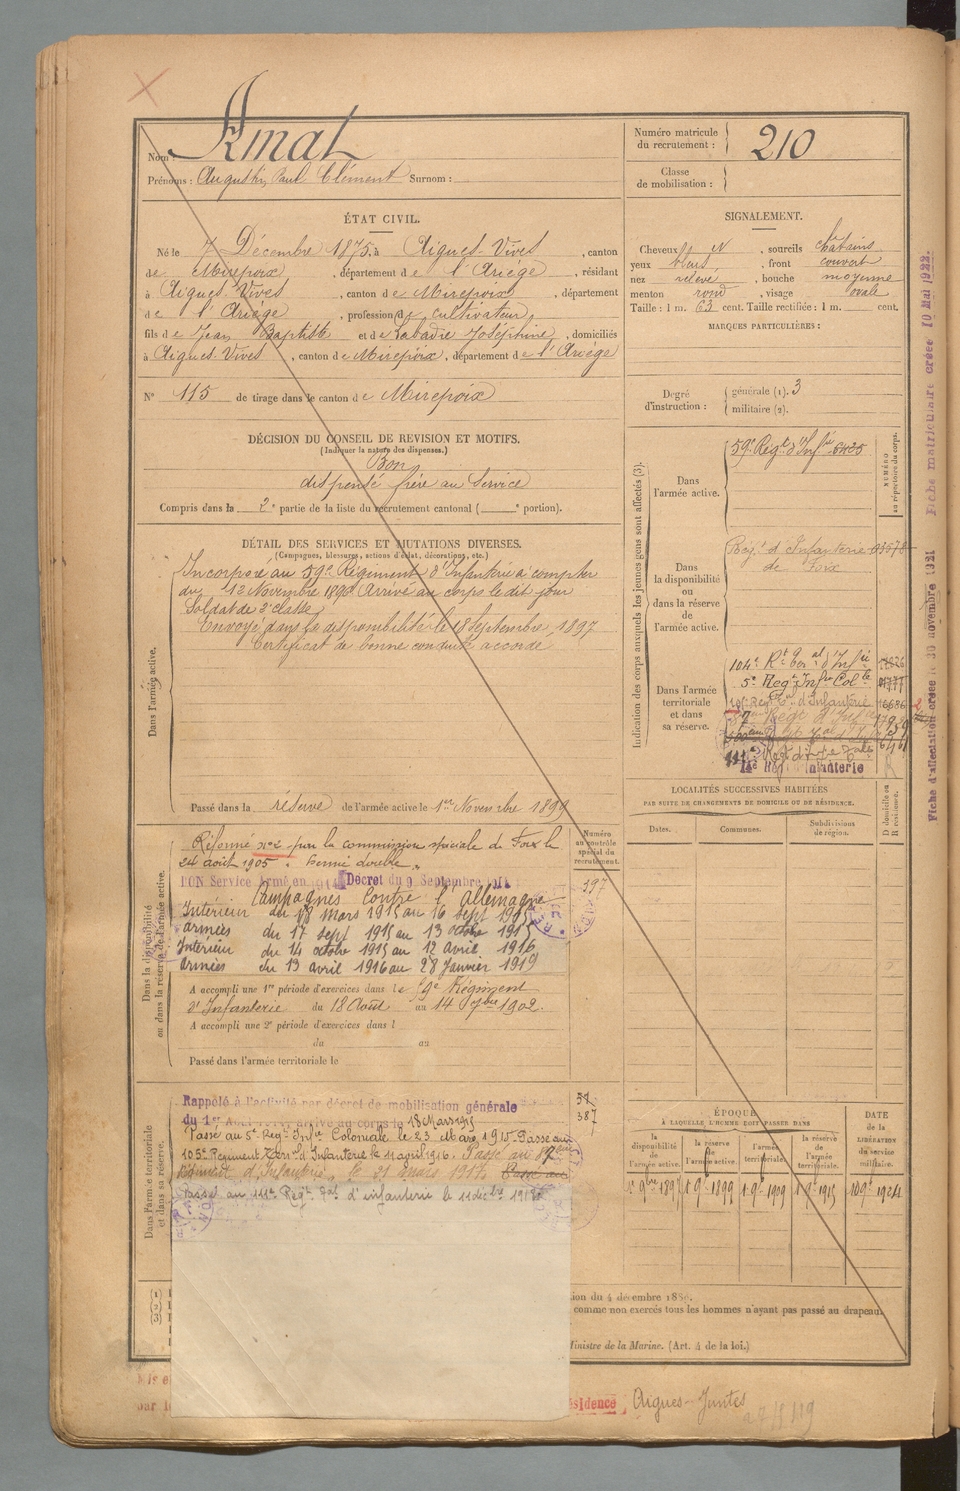 Nom : Amat
Prénoms : Augustin, Paul Clément Surnom :
Numéro matricule du recrutement : 210
Classe de mobilisation :
ÉTAT CIVIL.
Né le 7 Décembre 1875, à Aigues-Vives, canton
de Mirepoix, département de l'Ariège, résidant
à Aigues-Vives, canton de Mirepoix, département
de l'Ariège, profession de cultivateur,
fils de Jean Baptiste et de Labadie Joséphine, domiciliés
à Aigues-Vives, canton de Mirepoix, département de l'Ariège
N° 115 de tirage dans le canton de Mirepoix
SIGNALEMENT.
Cheveux N, sourcils châtains
yeux bleus, front couvert
nez relevé, bouche moyenne
menton rond, visage ovale
Taille : 1 m. 63 cent. Taille rectifiée : 1 m. cent.
MARQUES PARTICULIÈRES :
Degré d'instruction : générale (1). 3
militaire (2).
DÉCISION DU CONSEIL DE REVISION ET MOTIFS.
(Indiquer la nature des dispenses.)
Bon
dispensé frère au Service
Compris dans la 2e partie de la liste du recrutement cantonal ( e portion).
DÉTAIL DES SERVICES ET MUTATIONS DIVERSES.
(Campagnes, blessures, actions d'éclat, décorations, etc.)
Dans l'armée active.
Incorporé au 59e Régiment d'Infanterie à compter
du 12 Novembre 1896 Arrivé au corps le dit jour
Soldat de 2e classe
Envoyé dans la disponibilité le 18 Septembre 1897
Certificat de bonne conduite accordé
Passé dans la réserve de l'armée active le 1er Novembre 1899
Indication des corps auxquels les jeunes gens sont affectés (3).
NUMÉRO au répertoire du corps.
Dans l'armée active.
59e Régt d'Infrie 6425
Dans la disponibilité ou dans la réserve de l'armée active.
Régt d'Infanterie
de Foix
Dans l'armée territoriale et dans sa réserve.
104e Rt Ter al d'Infie
5e Regt Infie Colle
105e Reg Ter d'Infanterie
14e Reg Infanterie
LOCALITÉS SUCCESSIVES HABITÉES
PAR SUITE DE CHANGEMENTS DE DOMICILE OU DE RÉSIDENCE.
Dates. Communes. Subdivisions de région. D domicile ou R résidence.
Dans la disponibilité ou dans la réserve de l'armée active.
Numéro au contrôle spécial du recrutement.
Réformé n° 2 par la commission spéciale de Foix le
24 août 1905. hernie double.
397
BON Service Armé en 1914 Décret du 9 Septembre 1914
Campagnes Contre l'Allemagne
Intérieur du 18 mars 1915 au 16 sept 1915
armées du 17 sept 1915 au 13 octobre 1915
Intérieur du 14 octobre 1915 au 12 avril 1916
armées du 13 avril 1916 au 28 Janvier 1919
A accompli une 1re période d'exercices dans le 59e Régiment
d'Infanterie du 18 Août au 14 7bre 1902.
A accompli une 2e période d'exercices dans l
du au
Passé dans l'armée territoriale le
Dans l'armée territoriale et dans sa réserve.
Rappelé à l'activité par décret de mobilisation générale
du 1er Août arrivé au corps le 18 Mars 1915
387
Passé au 5e Regt Infie Coloniale le 23 Mars 1915 Passé au
105e Régiment Terral d'Infanterie le 11 avril 1916. Passé au
Régiment d'Infanterie, le 21 mars 1917.
Passé au 111e Régt Tal d'infanterie le 11 décbre 1917
ÉPOQUE À LAQUELLE L'HOMME DOIT PASSER DANS
la disponibilité de l'armée active. la réserve de l'armée active. l'armée territoriale. la réserve de l'armée territoriale.
DATE de la LIBÉRATION du service militaire.
1 9bre 1897 1 9 1899 1 9 1909 1 9 1915
(1)
(2)
(3)
comme non exercés tous les hommes n'ayant pas passé au drapeau
Ministre de la Marine. (Art. 4 de la loi.)
Aigues-Juntes
Fiche d'affectation créée le 30 novembre 1921
Fiche matriculaire créée 10 Mai 1922.